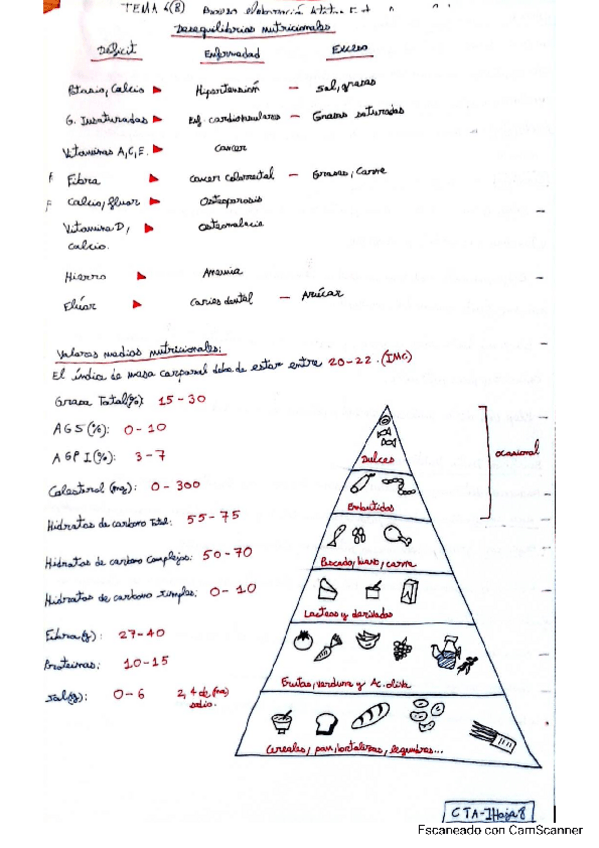 TEMA 6(B) Proceso elaboración
Desequilibrios nutricionales
Déficit Enfermedad Exceso
Potasio, Calcio Hipertensión - Sal, grasas
G. Insaturadas Enf. cardiovasculares - Grasas saturadas
Vitaminas A, C, E. Cancer
Fibra Cancer colorrectal - Grasas, Carne
Calcio, fluor Osteoporosis
Vitamina D, Osteomalacia
calcio.
Hierro Anemia
Flúor Caries dental - Azúcar
Valores medios nutricionales:
El índice de masa corporal debe de estar entre 20-22. (IMC)
Grasa Total(%): 15-30
AGS(%): 0-10
AGPI(%): 3-7
Colesterol (mg): 0-300
Hidratos de carbono Total: 55-75
Hidratos de carbono Complejos: 50-70
Hidratos de carbono simples: 0-10
Fibra(g): 27-40
Proteinas: 10-15
Sal(g): 0-6 2,4 de (mg)
sodio.
Dulces
ocasional
Embutidos
Pescado, huevo, carne
Lacteos y derivados
Frutas, verdura y Ac. oliva
Cereales, pan, hortalizas, legumbres...
CTA-1Hoja8
Escaneado con CamScanner